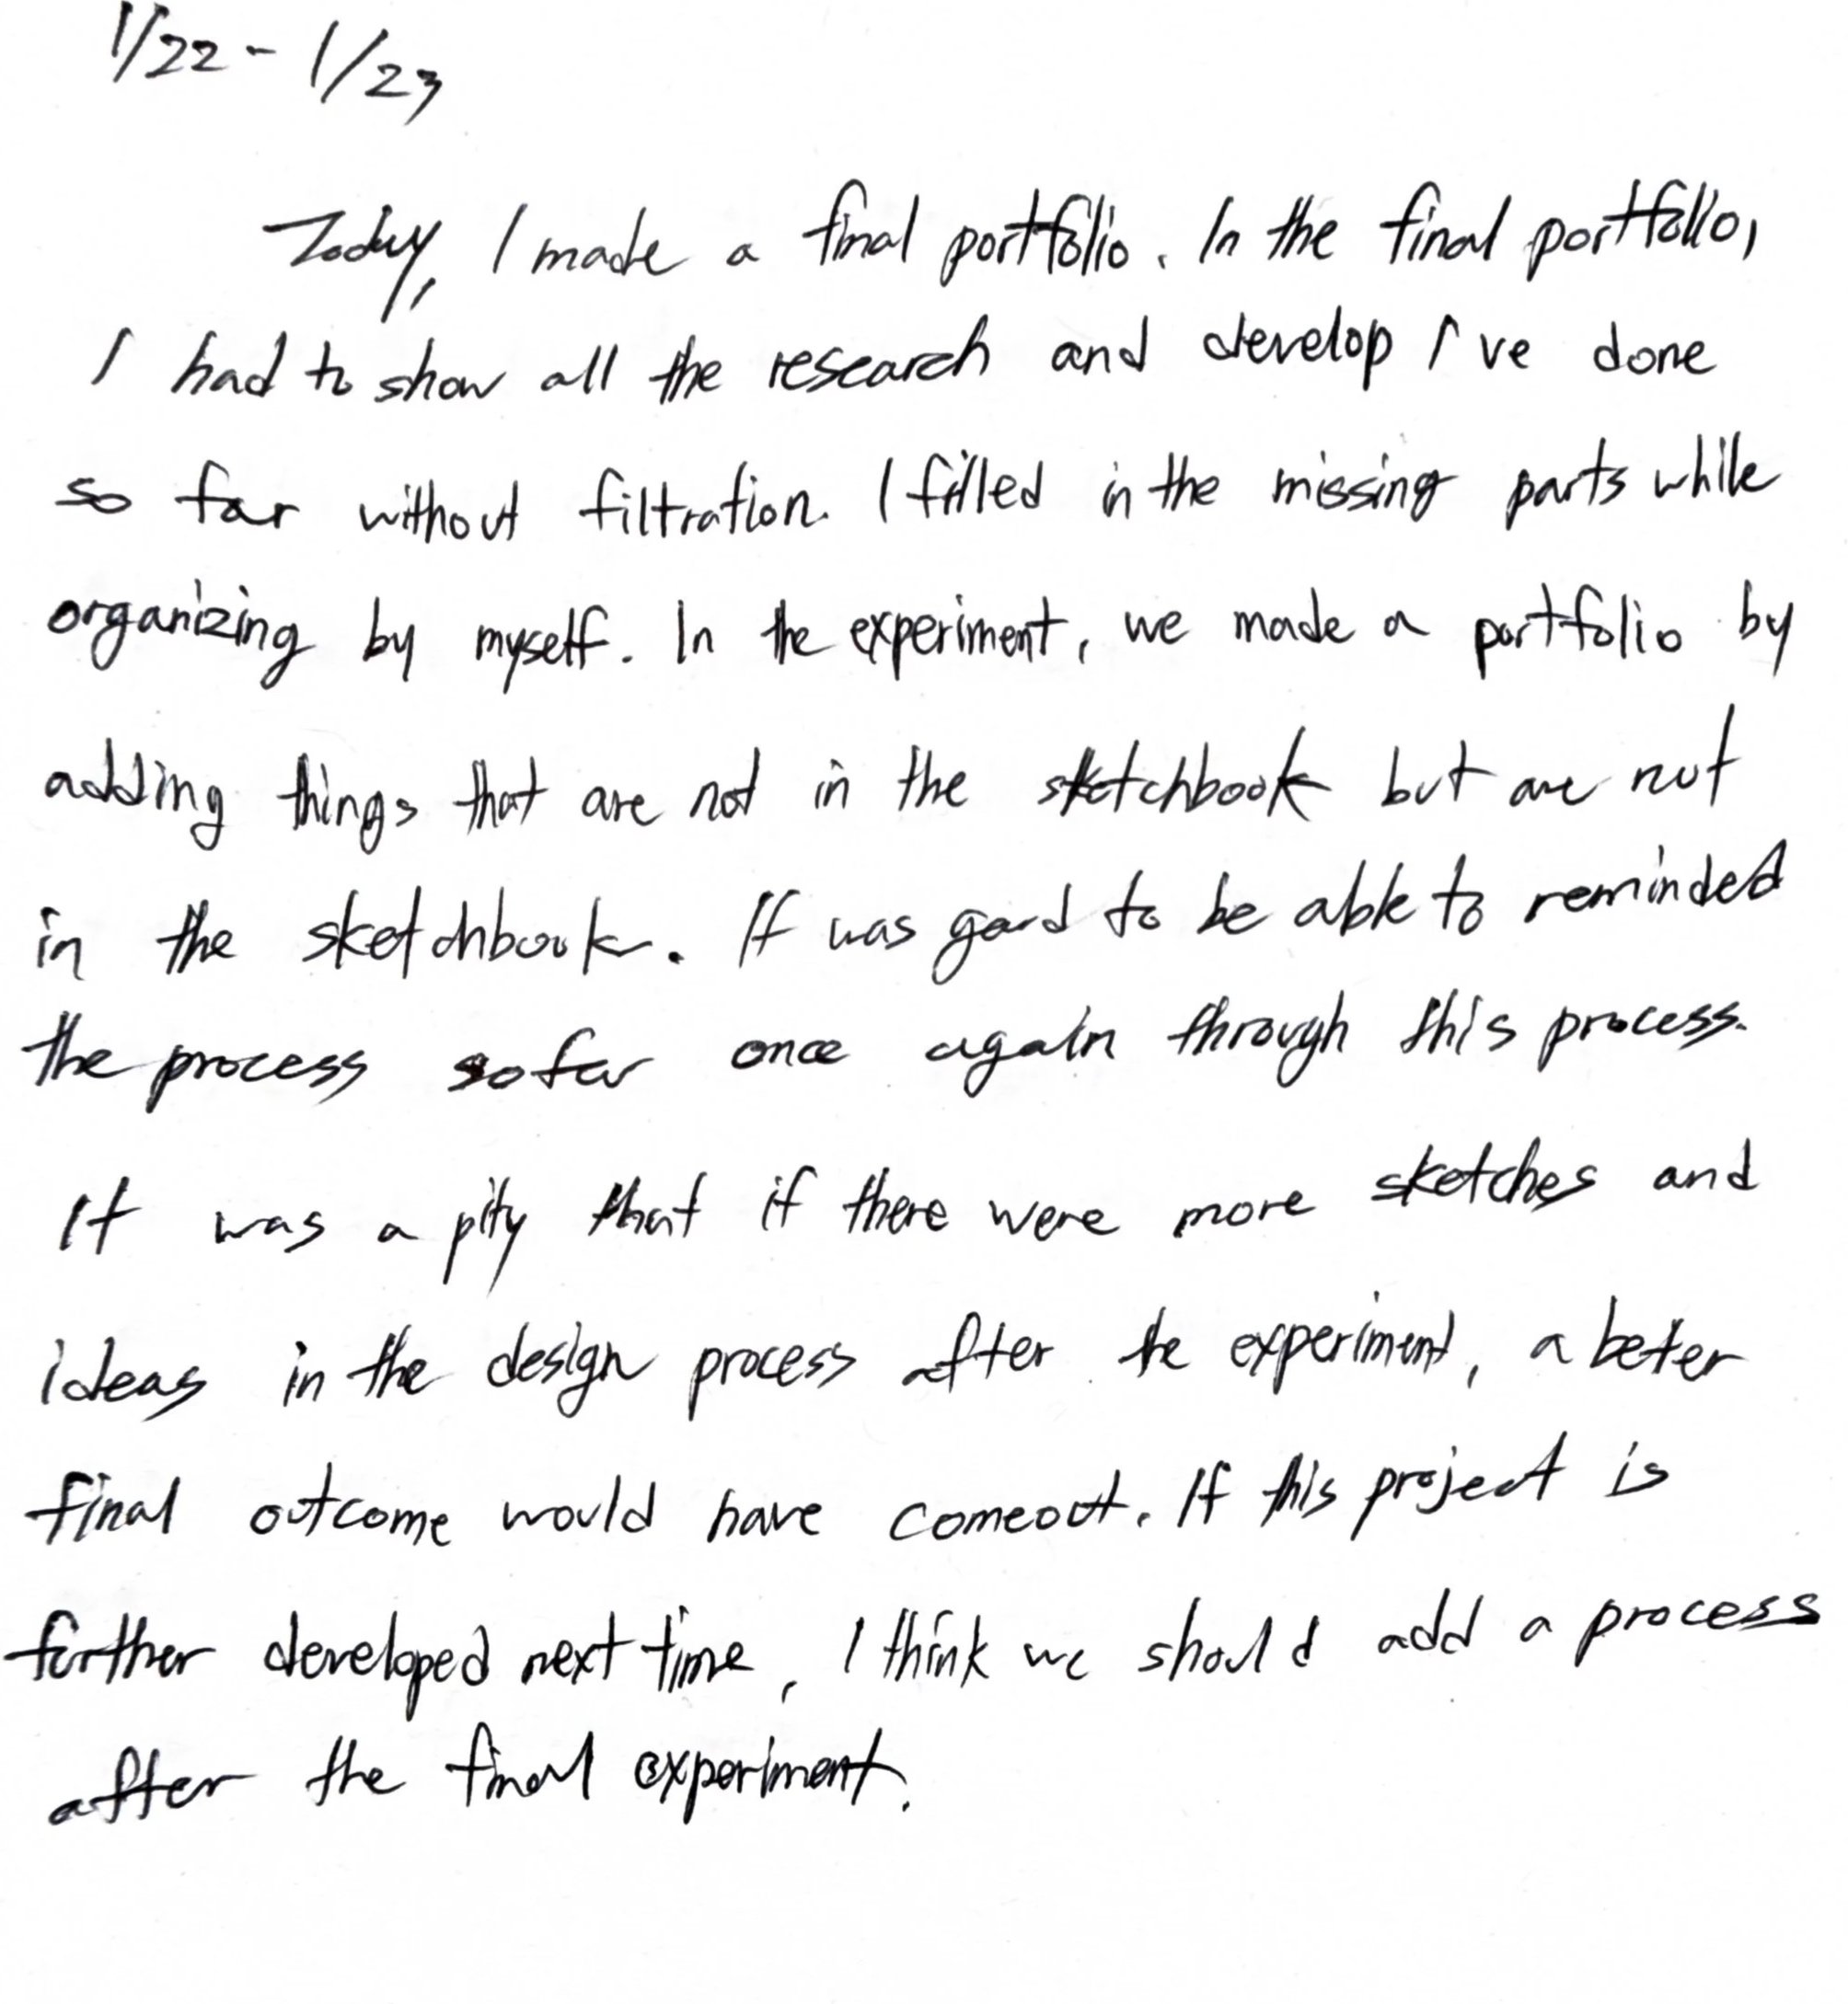 1/22 - 1/23
Today, I made a final portfolio. In the final portfolio,
I had to show all the research and develop I've done
so far without filtration. I filled in the missing parts while
organizing by myself. In the experiment, we made a portfolio by
adding things that are not in the sketchbook but are not
in the sketchbook. It was good to be able to reminded
the process so far once again through this process.
It was a pity that if there were more sketches and
ideas in the design process after the experiment, a beter
final outcome would have comeout. If this project is
further developed next time, I think we should add a process
after the final experiment.